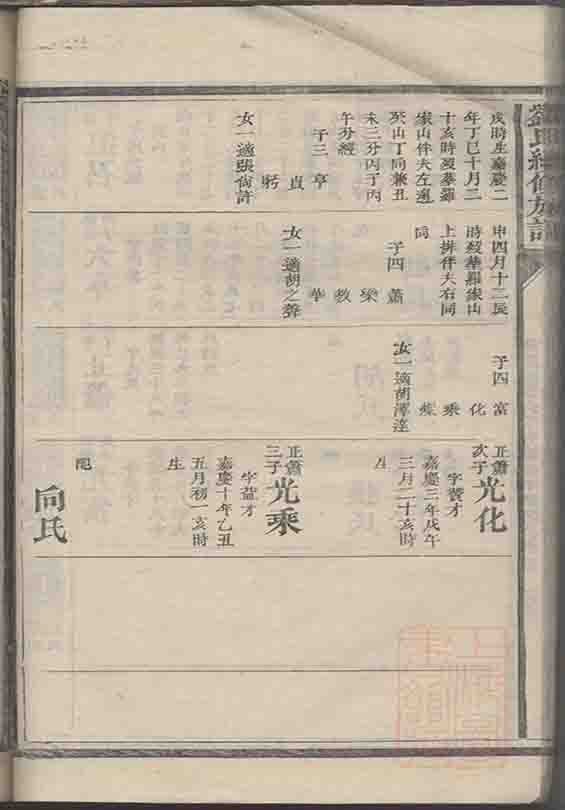 劉氏續修族譜
戌時生嘉慶二
年丁巳十月二
十亥時歿葬羅
家山伴夫左邊
癸山丁向兼丑
未三分丙子丙
午分經
子三 亨
貞
女一適張尙許
申四月十二辰
時歿葬羅家山
上排伴夫右同
向
子四 蕭
梁
教
華
女一適胡之聲
子四 富
化
乘
女一適胡澤
正蕭次子
光化
字贊才
嘉慶三年戊午
三月二十亥時
生
正蕭三子
光乘
字益才
嘉慶十年乙丑
五月初一亥時
生
配
向氏